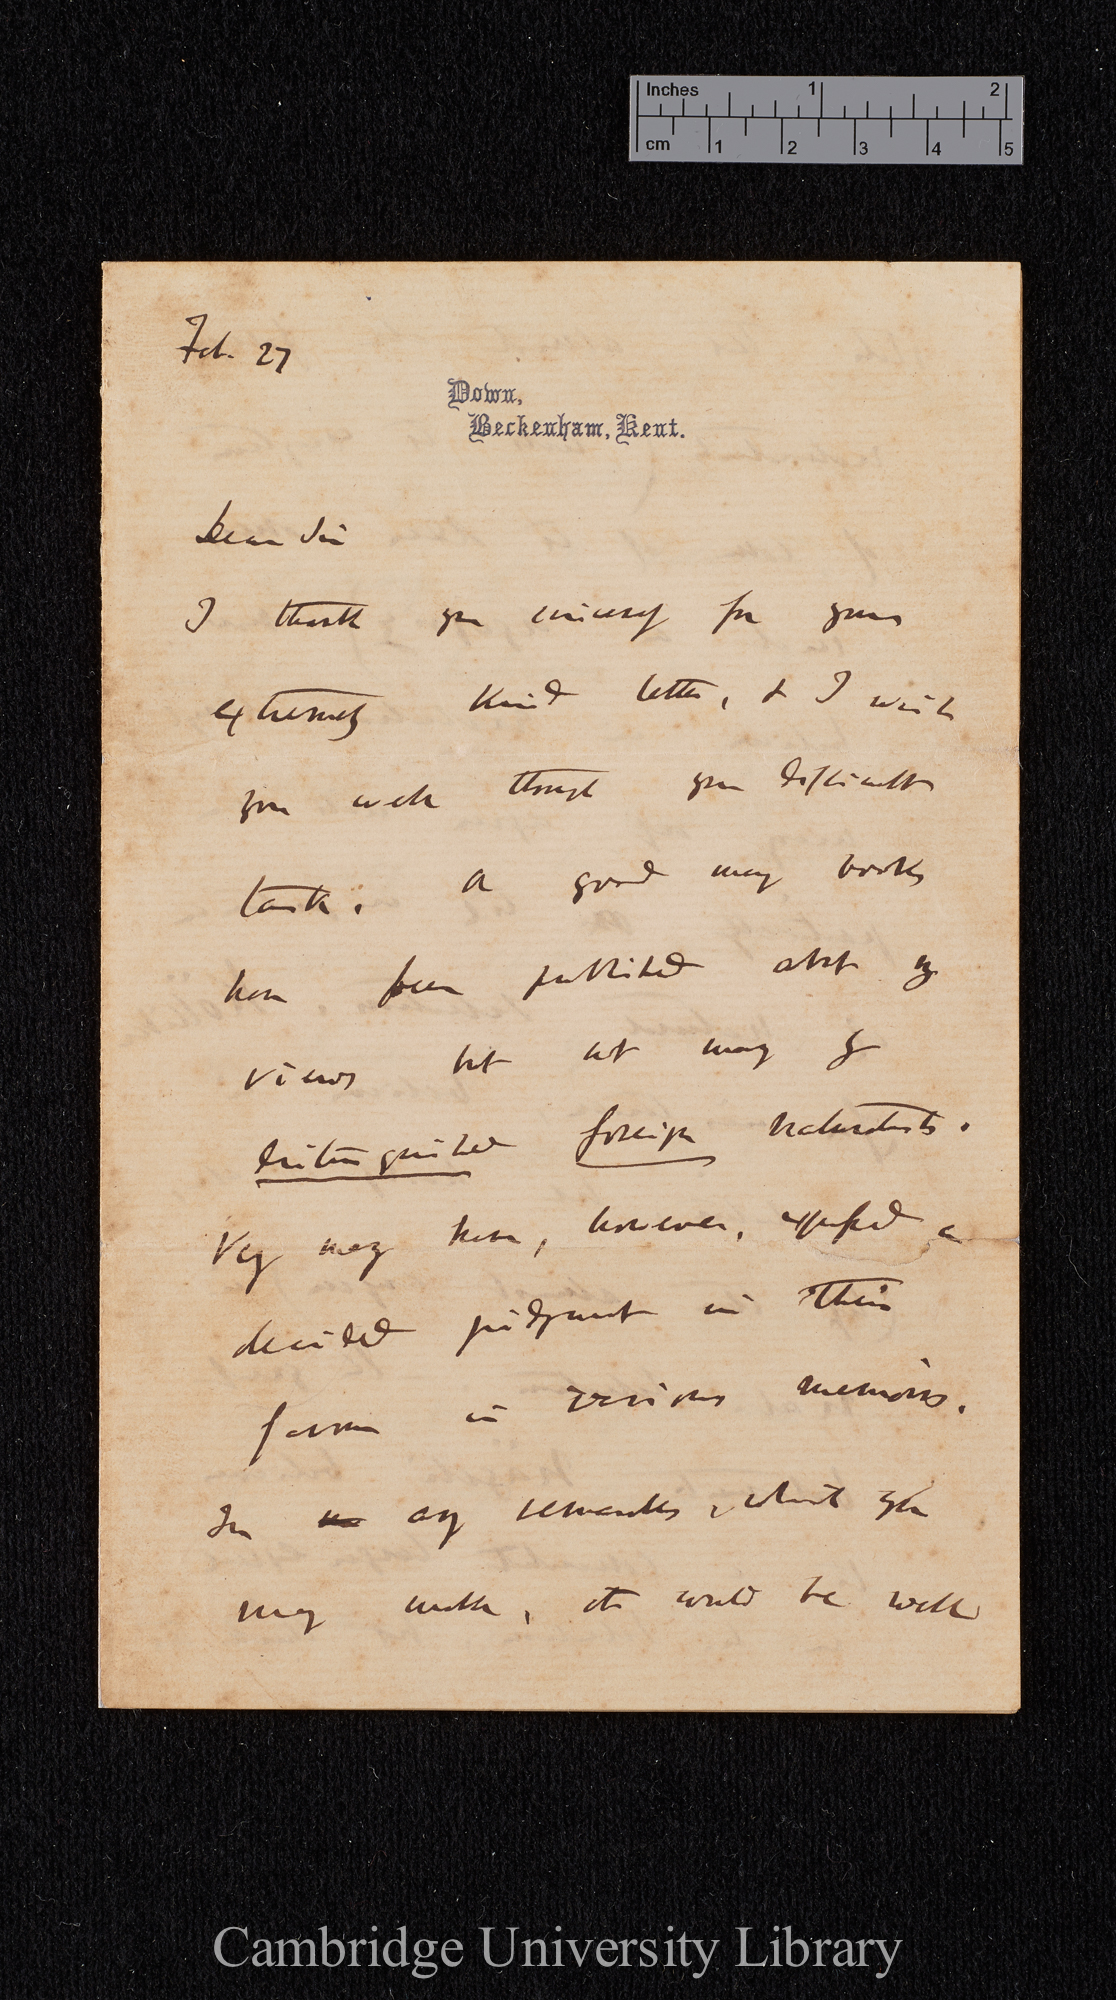 Inches 1 2
cm 1 2 3 4 5
Feb. 27
Down,
Beckenham, Kent.
Dear Sir
I thank you sincerely for your
extremely kind letter, & I wish
you well through your difficult
task. A good many books
have been published about my
views but not many by
distinguished foreign naturalists.
Very many have, however, expressed a
decided judgment in their
favour in various memoirs.
In any remarks, which you
may make, it would be well
Cambridge University Library